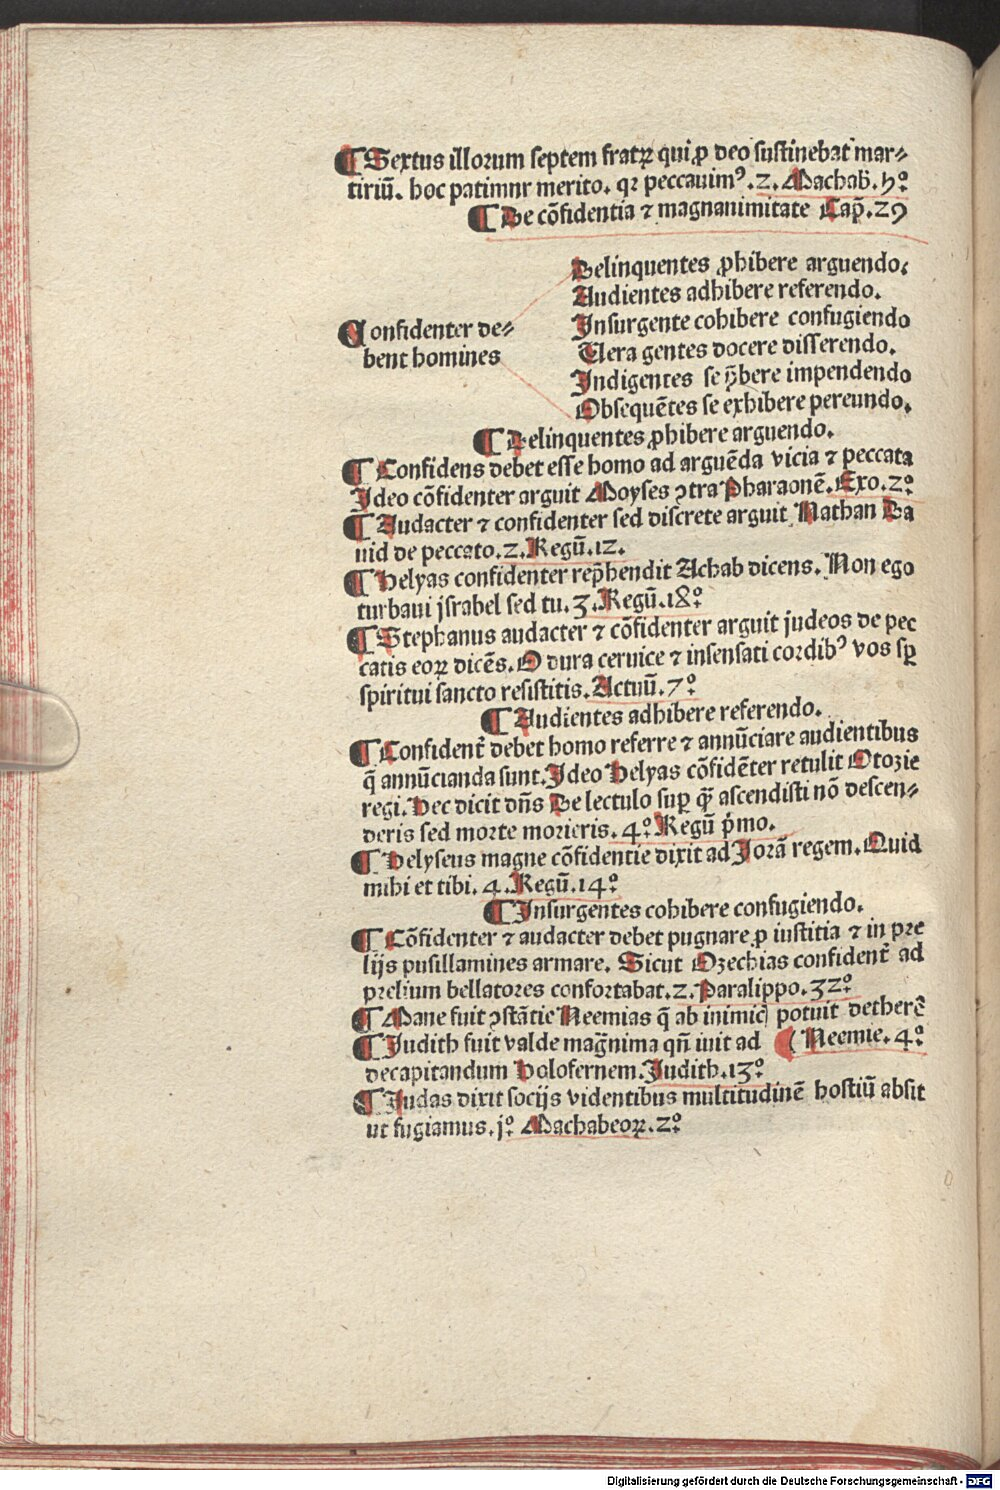 ¶ Sextus illorum septem fratꝝ qui ꝓ deo sustinebāt mar⸗
tiriū. hoc patimnr merito. qꝛ peccauimꝰ. 2. Machab̄. ꝩꝰ
¶ De cōfidentia ⁊ magnanimitate Cap̄. 29
Delinquentes ꝓhibere arguendo.
Audientes adhibere referendo.
Confidenter de⸗
bent homines
Insurgente cohibere confugiendo
Uera gentes docere disserendo.
Indigentes se p̄bere impendendo
Obsequētes se exhibere pereundo.
¶ Delinquentes ꝓhibere arguendo.
¶ Confidens debet esse homo ad arguēda vicia ⁊ peccata
Ideo cōfidenter arguit Moyses ꝯtra Pharaonē. Exo. 2º
¶ Audacter ⁊ confidenter sed discrete arguit Nathan Da
uid de peccato. 2. Regū. 12.
¶ Helyas confidenter rep̄hendit Achab dicens. Non ego
turbaui jsrabel sed tu. 3. Regū. 18º
¶ Stephanus audacter ⁊ cōfidenter arguit judeos de pec
catis eoꝝ dicēs. O dura ceruice ⁊ insensati cordibꝰ vos sꝑ
spiritui sancto resistitis. Actuū. 7º
¶ Audientes adhibere referendo.
¶ Confident̄ debet homo referre ⁊ annūciare audientibus
q̄ annūcianda sunt. Ideo Helyas cōfidēter retulit Otozie
regi. Hec dicit dn̄s De lectulo suꝑ quē ascendisti nō descen⸗
deris sed morte morieris. 4º Regū pͥmo.
¶ Helyseus magne cōfidentie dixit ad Jorā regem. Quid
mihi et tibi. 4. Regū. 14º
¶ Insurgentes cohibere confugiendo.
¶ Cōfidenter ⁊ audacter debet pugnare ꝓ iustitia ⁊ in pre
lijs pusillamines armare. Sicut Ozechias confident̄ ad
prelium bellatores confortabat. 2. Paralippo. 32º
¶ Mane fuit ꝯstātie Neemias q̄ ab inimicꝭ potuit detherē
¶ Judith fuit valde maḡnima qn̄ iuit ad ( Neemie. 4º
decapitandum Holofernem. Judith. 13º
¶ Judas dixit socijs videntibus multitudinē hostiū absit
ut fugiamus. jº Machabeoꝝ. 2º
Digitalisierung gefördert durch die Deutsche Forschungsgemeinschaft - DFG